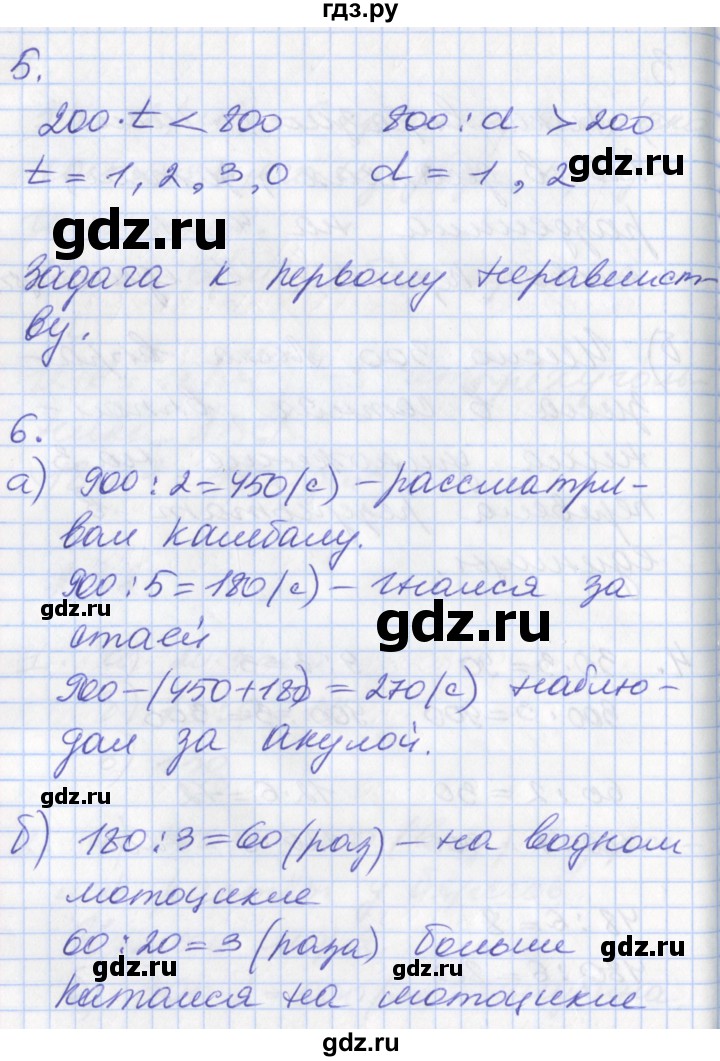 гдз.ру
5.
200·t < 800 800:d > 200
t = 1, 2, 3, 0 d = 1, 2
gdz.ru
gdz.ru
Задача к первому неравенст-
ву.
6.
а) 900:2=450(с) – рассматри-
вал камбалу.
gdz.ru
900:5=180(с) – гнался за
gdz.ru
gdz.ru
стаей
900–(450+180) = 270(с) наблю-
дал за акулой.
gdz.ru
gdz.ru
б) 180:3=60(раз) – на водном
мотоцикле
gdz.ru
60:20=3(раза) больше
gdz.ru
gdz.ru
катался на мотоцикле
gdz.ru